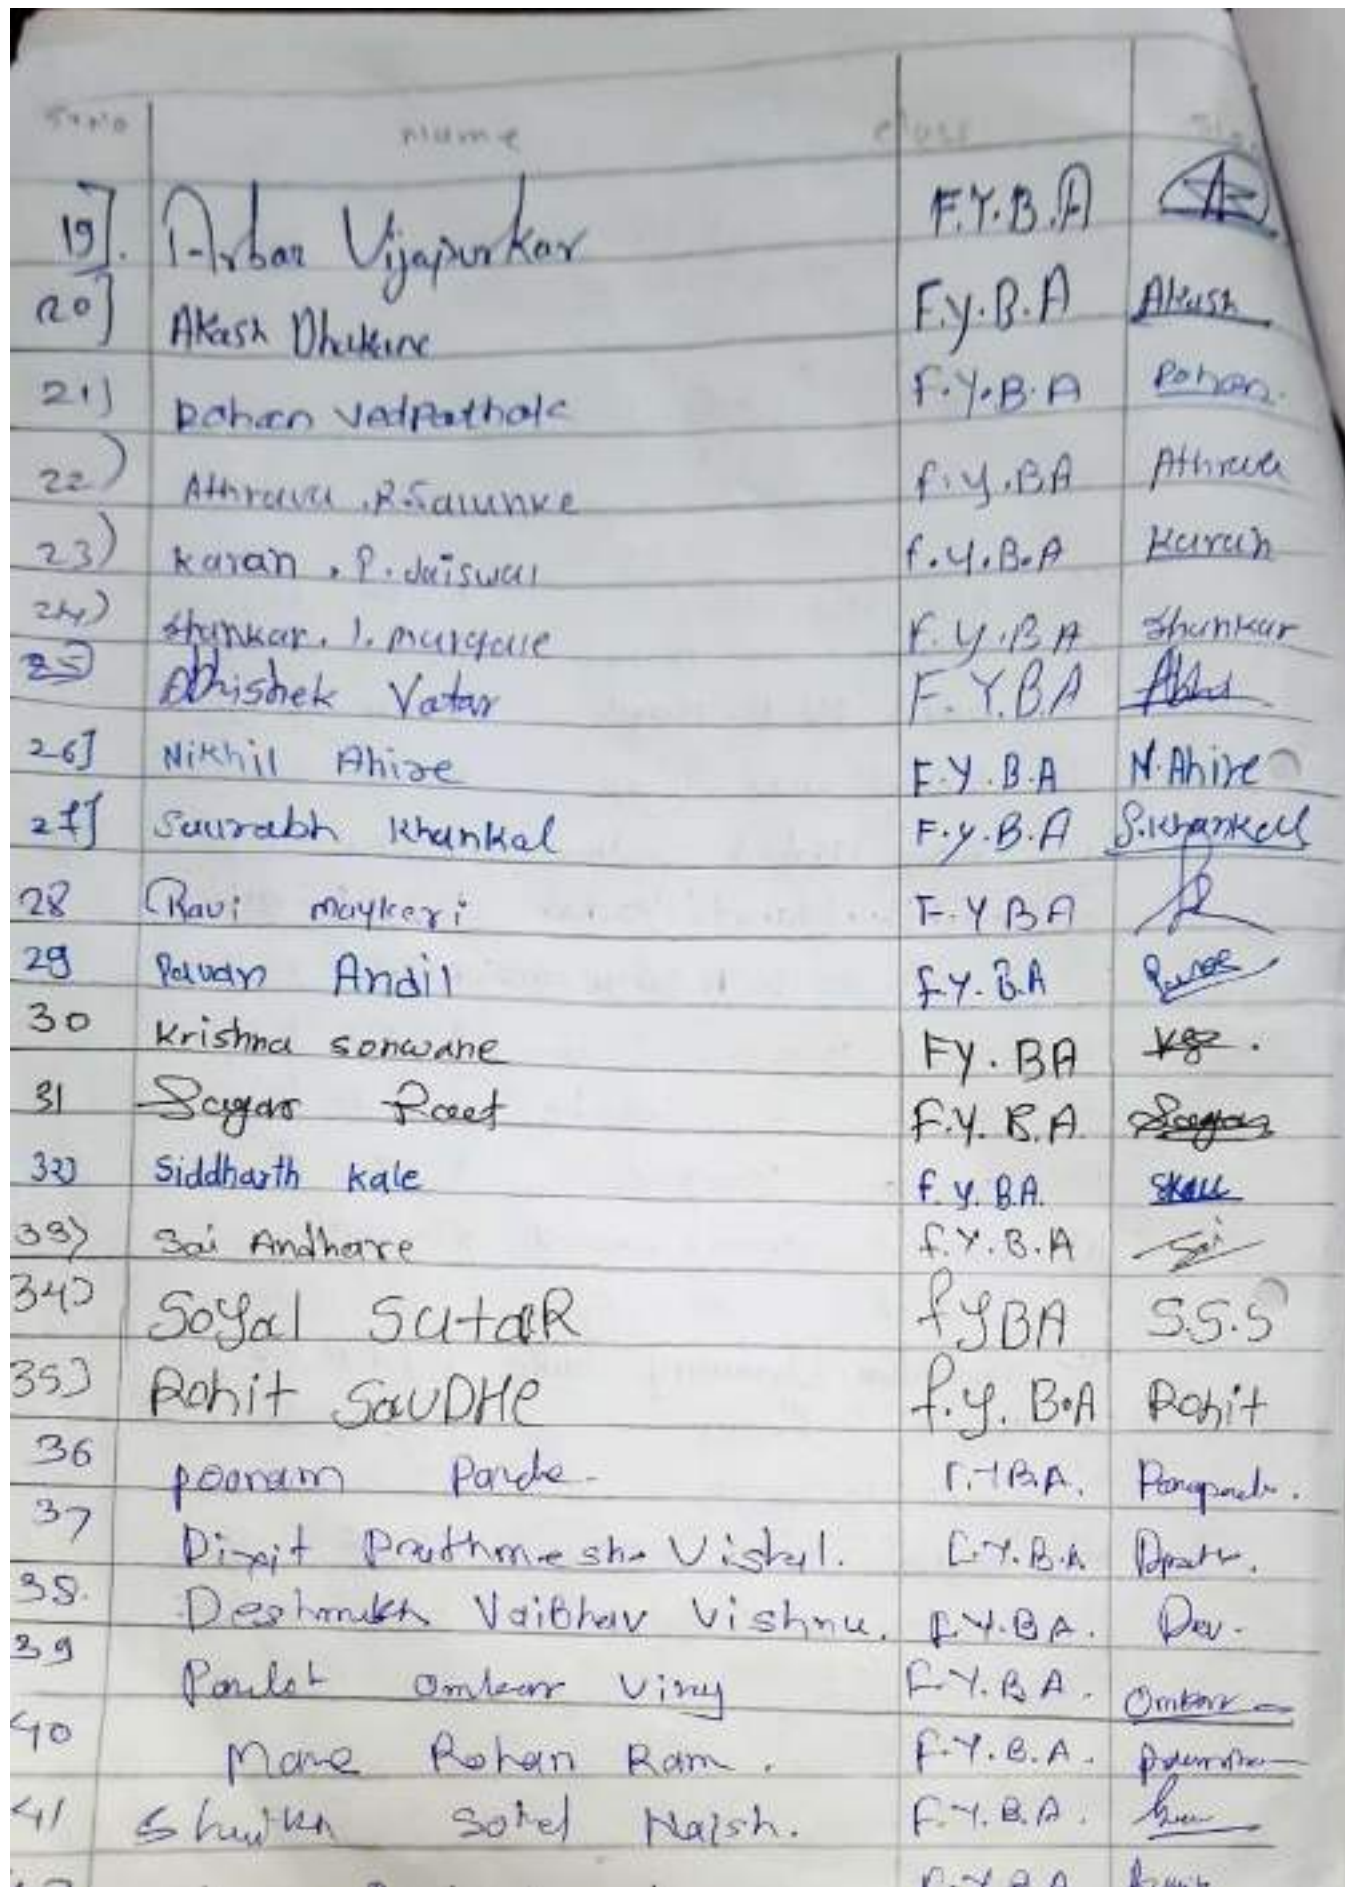 Sr.No Name Class Sig.
19]. Arbaz Vijapurkar F.Y.B.A
20] Akash Dhakane F.Y.B.A Akash
21) Rohan Vedpathak F.Y.B.A Rohan.
22) Athrava .R.Salunke F.Y.BA Athrava
23) Karan . P. Jaiswal F.Y.B.A Karan
24) Shankar. I. F.Y.BA Shankar
25) Abhishek Vatar F.Y.BA
26] Nikhil Ahire F.Y.B.A N.Ahire
27] Saurabh Khankal F.Y.B.A S.Khankal
28 Ravi Maykeri F.YBA
29 Pavan Andil F.Y.B.A
30 Krishna Sonwane FY.BA
31 Sagar F.Y.B.A. Sagar
32) Siddharth Kale F.Y.B.A. Skale
33) Sai Andhare F.Y.B.A Sai
34) Soyal SutaR FYBA S.S.S
35) Rohit SavDHe F.Y.B.A Rohit
36 Poonam F.YB.A.
37 Dixit Prathmesh F.Y.B.A
38. Deshmukh VaiBhav Vishnu. F.Y.BA. Dev.
39 Omkar F.Y.B.A. Omkar
40 Mane Rohan Ram. F.Y.B.A.
41 Shaikh F.Y.B.A.